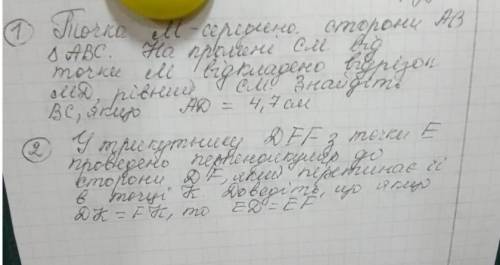 ① Точка М - середина сторони АВ
Δ АВС. На промені СМ від
точки М відкладено відрізок
МD, рівний СМ Знайдіть
ВС, якщо АD = 4,7 см
② У трикутнику DEF з точки Е
проведено перпендикуляр до
сторони DF, який перетинає її
в точці К Доведіть, що якщо
DK = FK, то ED = EF